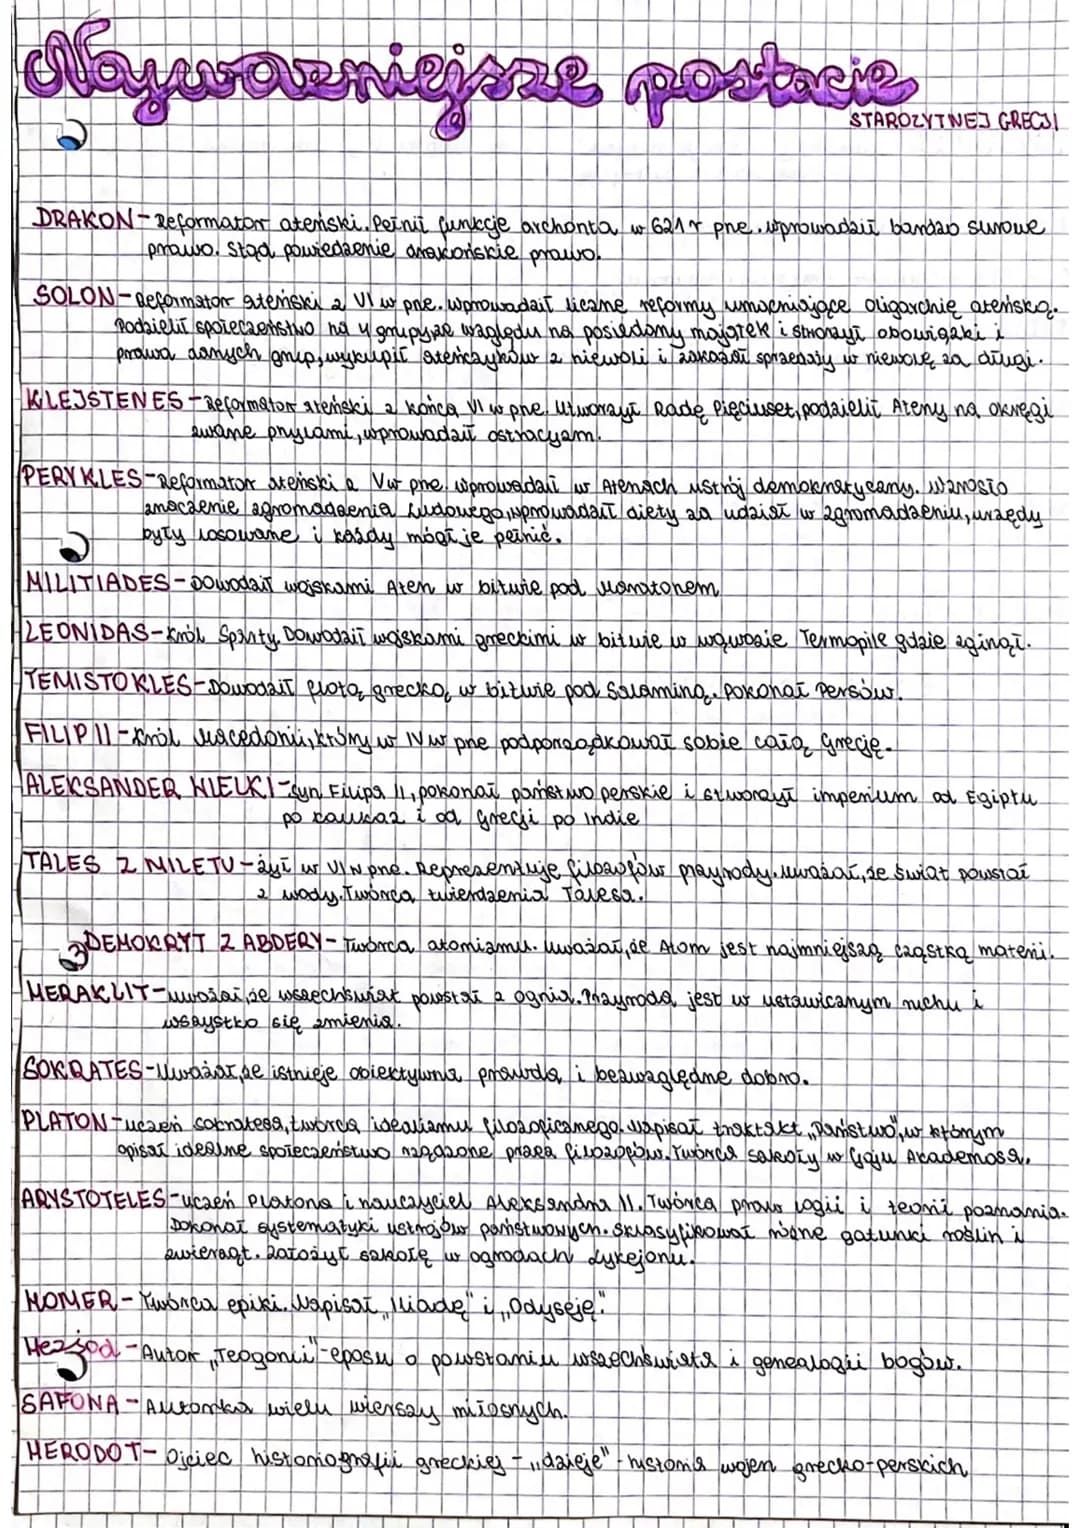 Najważniejsze postacie
STAROŻYTNEJ GRECJI
DRAKON - Reformator ateński. Pełnił funkcje archonta w 621 r pne. wprowadził bardzo surowe
prawo. Stąd powiedzenie drakońskie prawo.
SOLON - Reformator ateński z VI w pne. wprowadził liczne reformy umacniające oligarchię ateńską.
Podzielił społeczeństwo na 4 grupy ze względu na posiadany majątek i stworzył obowiązki i
prawa danych grup, wykupił ateńczyków z niewoli i zakazał sprzedaży w niewolę za długi.
KLEJSTENES - Reformator ateński z końca VI w pne. Utworzył Radę Pięciuset, podzielił Ateny na okręgi
zwane prylami, wprowadził ostracyzm.
PERYKLES - Reformator ateński z V w pne. wprowadził w Atenach ustrój demokratyczny. Wzrosło
znaczenie zgromadzenia Ludowego, wprowadził diety za udział w zgromadzeniu, urzędy
były losowane i każdy mógł je pełnić.
MILITIADES - Dowodził wojskami Aten w bitwie pod Maratonem
LEONIDAS - Król Sparty. Dowodził wojskami greckimi w bitwie w wąwozie Termopile gdzie zginął.
TEMISTOKLES - Dowodził flotą grecką w bitwie pod Salaminą. Pokonał Persów.
FILIP II - Król Macedonii, który w IV w pne podporządkował sobie całą Grecję.
ALEKSANDER WIELKI - syn Filipa II, pokonał państwo perskie i stworzył imperium od Egiptu
po kaukaz i od Grecji po Indie
TALES Z MILETU - żył w VI w pne. Reprezentuje filozofów przyrody. uważał, że świat powstał
z wody. Twórca twierdzenia Talesa.
DEMOKRYT Z ABDERY - Twórca atomizmu. uważał, że Atom jest najmniejszą cząstką materii.
HERAKLIT - uważał, że wszechświat powstał z ognia. Przyroda jest w ustawicznym ruchu i
wszystko się zmienia.
SOKRATES - Uważał, że istnieje obiektywna prawda i bezwzględne dobro.
PLATON - uczeń sokratesa, twórca idealizmu filozoficznego. wpisał traktat „Państwo", w którym
opisał idealne społeczeństwo rządzone przez filozofów. Twórca szkoły w Gaju Akademosa.
ARYSTOTELES - uczeń Platona i nauczyciel Aleksandra II. Twórca praw logii i teorii poznania.
Dokonał systematyki ustrojów państwowych. Sklasyfikował różne gatunki roślin i
zwierząt. Założył szkołę w ogrodach Lykejonu.
HOMER - Twórca epiki. Napisał „Iliadę" i „Odyseję."
Hezjod - Autor „Teogonii" - eposu o powstaniu wszechświata i genealogii bogów.
SAFONA - Autorka wielu wierszy miłosnych.
HERODOT - Ojciec historiografii greckiej - „dzieje" - historia wojen grecko-perskich